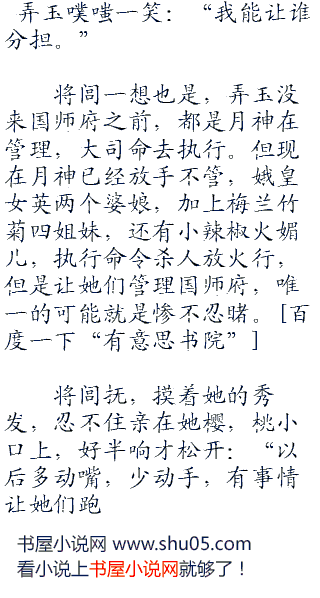 弄玉噗嗤一笑：“我能让谁
分担。”
将闾一想也是，弄玉没
来国师府之前，都是月神在
管理，大司命去执行。但现
在月神已经放手不管，娥皇
女英两个婆娘，加上梅兰竹
菊四姐妹，还有小辣椒火媚
儿，执行命令杀人放火行，
但是让她们管理国师府，唯
一的可能就是惨不忍睹。[百
度一下“有意思书院”]
将闾抚，摸着她的秀
发，忍不住亲在她樱，桃小
口上，好半响才松开：“以
后多动嘴，少动手，有事情
让她们跑
书屋小说网 www.shu05.com
看小说上书屋小说网就够了！